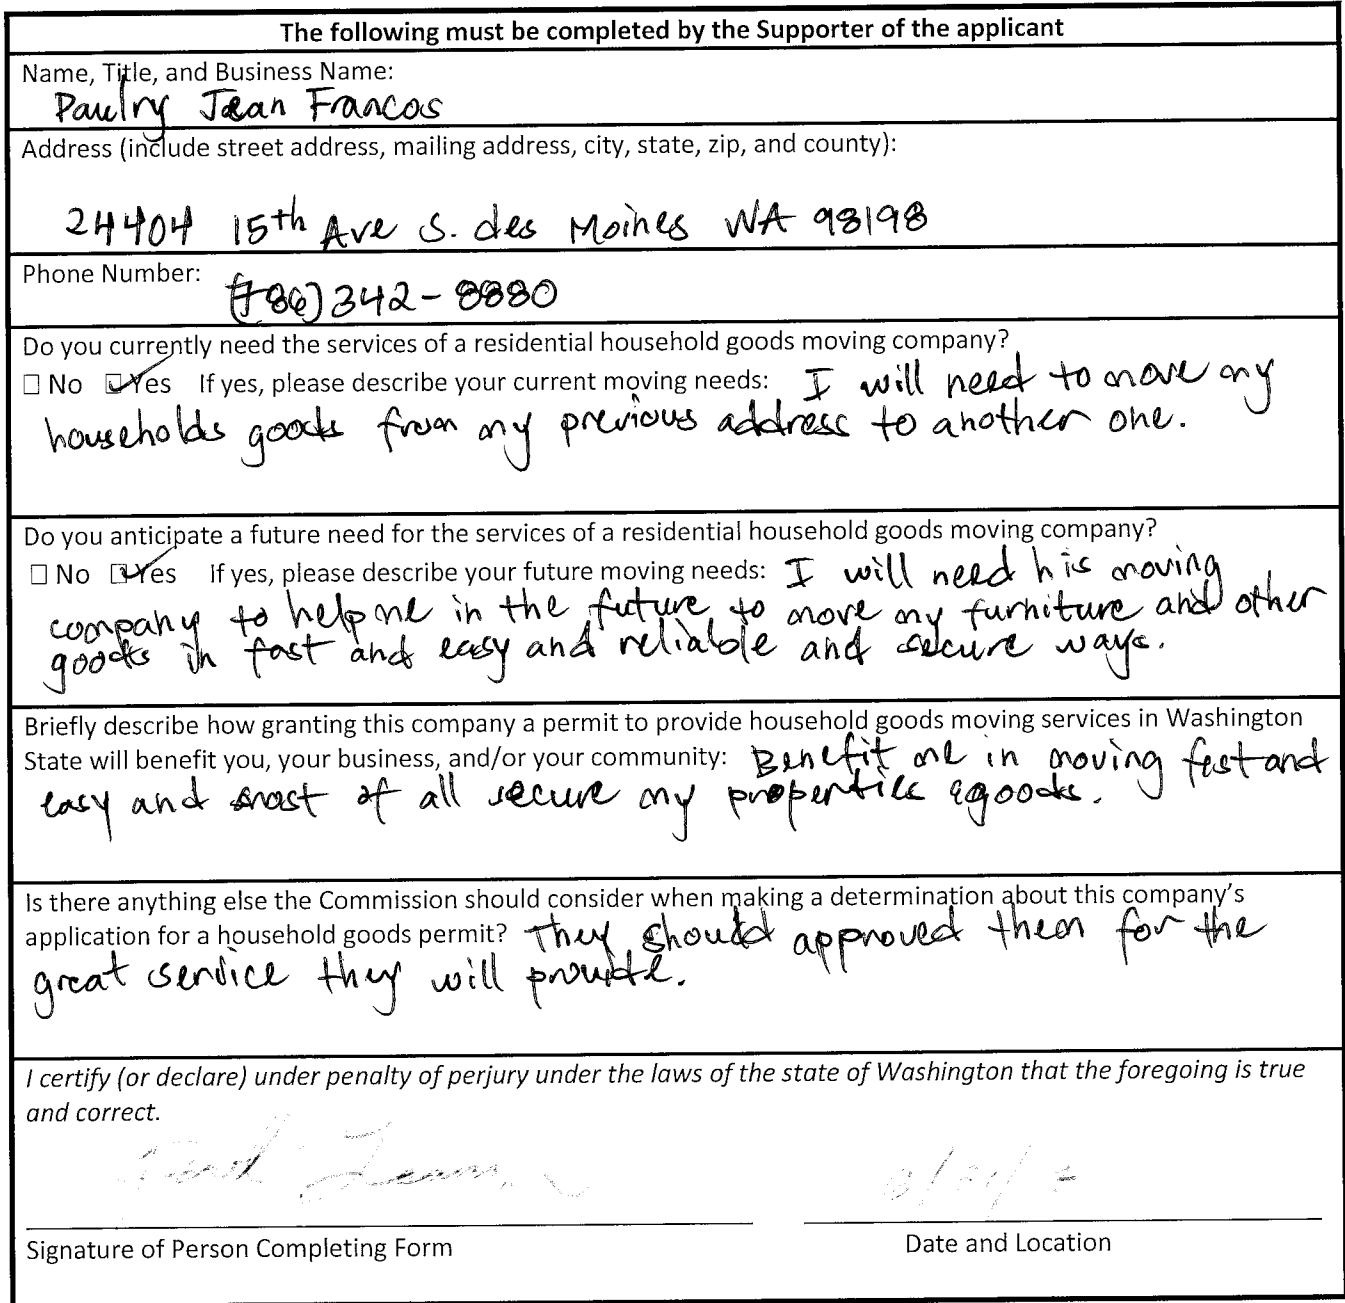 The following must be completed by the Supporter of the applicant
Name, Title, and Business Name:
Paulry Jean Francos
Address (include street address, mailing address, city, state, zip, and county):
24404 15th Ave S. des Moines WA 98198
Phone Number: (786) 342-8880
Do you currently need the services of a residential household goods moving company?
☐ No ☑ Yes If yes, please describe your current moving needs: I will need to move my
households goods from my previous address to another one.
Do you anticipate a future need for the services of a residential household goods moving company?
☐ No ☑ Yes If yes, please describe your future moving needs: I will need his moving
company to help me in the future to move my furniture and other
goods in fast and easy and reliable and secure ways.
Briefly describe how granting this company a permit to provide household goods moving services in Washington
State will benefit you, your business, and/or your community: Benefit me in moving fast and
easy and most of all secure my properties & goods.
Is there anything else the Commission should consider when making a determination about this company's
application for a household goods permit? They should approved them for the
great service they will provide.
I certify (or declare) under penalty of perjury under the laws of the state of Washington that the foregoing is true
and correct.
Signature of Person Completing Form
Date and Location